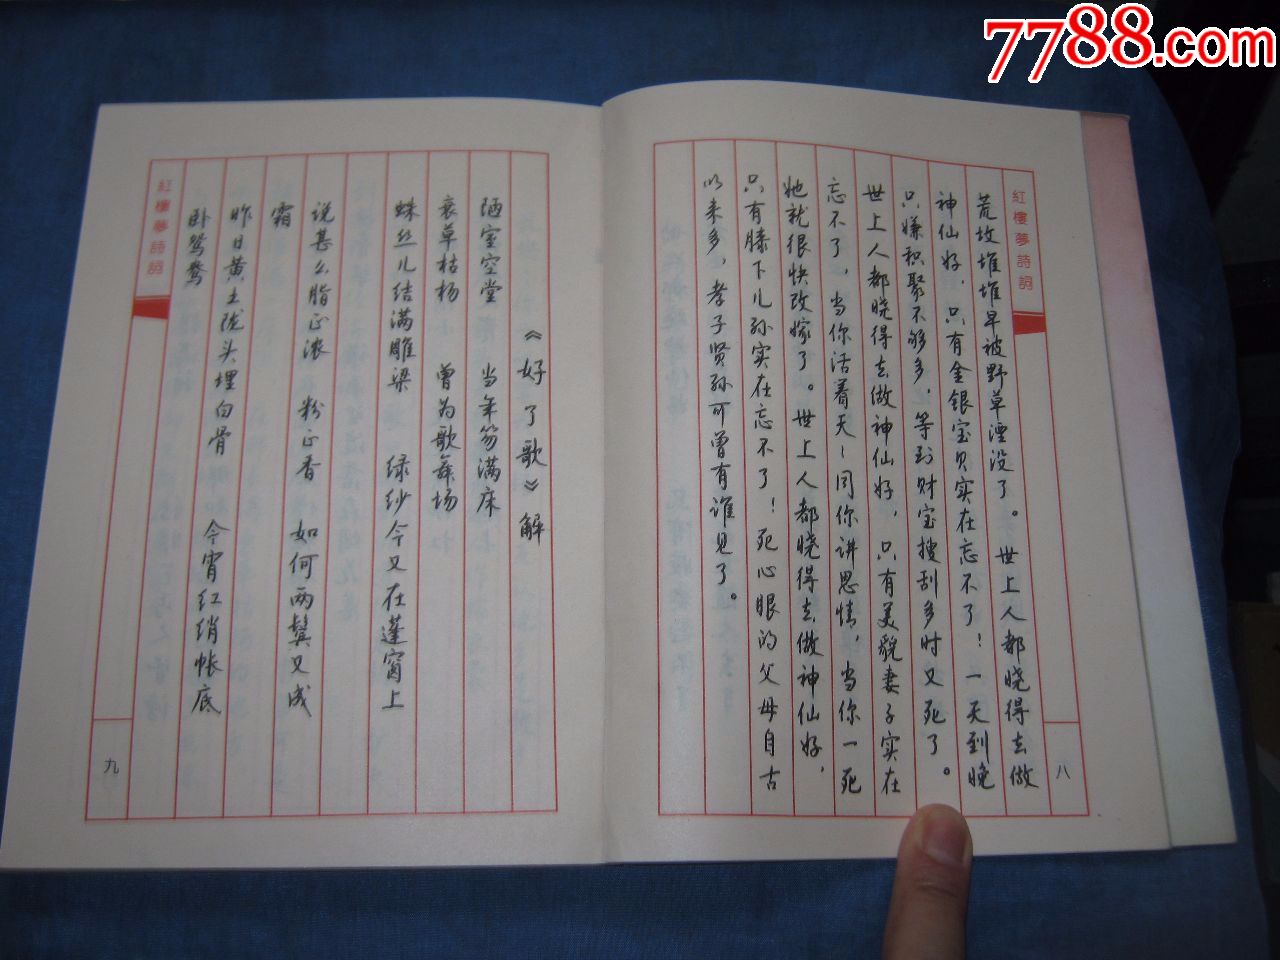 7788.com
紅樓夢詩詞
荒坟堆堆早被野草湮没了。世上人都晓得去做
神仙好，只有金银宝贝实在忘不了！一天到晚
只嫌积聚不够多，等到财宝搜刮多时又死了。
世上人都晓得去做神仙好，只有美貌妻子实在
忘不了，当你活着天～同你讲恩情，当你一死
她就很快改嫁了。世上人都晓得去做神仙好，
只有膝下儿孙实在忘不了！死心眼的父母自古
以来多，孝子贤孙可曾有谁见了。
八
《好了歌》解
陋室空堂 当年笏满床
衰草枯杨 曾为歌舞场
蛛丝儿结满雕梁 绿纱今又在蓬窗上
说甚么脂正浓 粉正香 如何两鬓又成
霜
昨日黄土陇头埋白骨 今宵红绡帐底
卧鸳鸯
紅樓夢詩詞
九